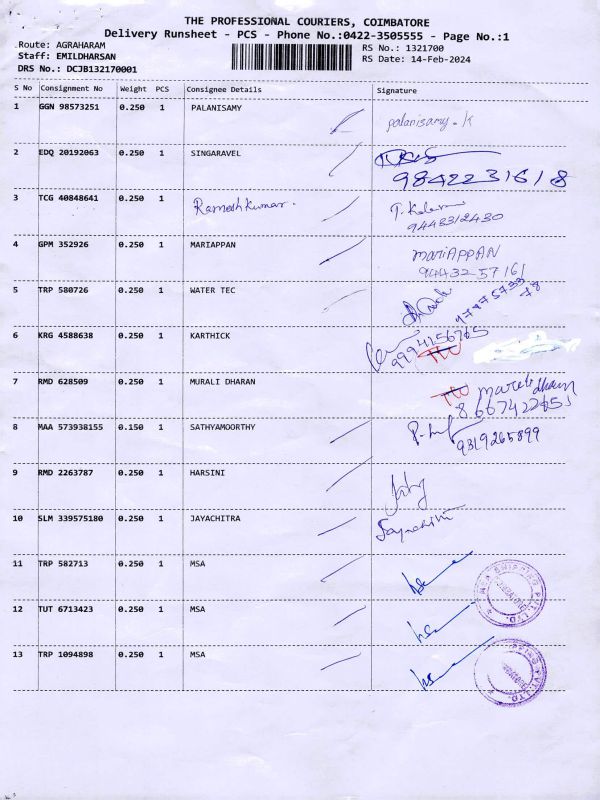 THE PROFESSIONAL COURIERS, COIMBATORE
Delivery Runsheet - PCS - Phone No.:0422-3505555 - Page No.:1
Route: AGRAHARAM
RS No.: 1321700
Staff: EMILDHARSAN
RS Date: 14-Feb-2024
DRS No.: DCJB132170001
S No Consignment No Weight PCS Consignee Details Signature
1 GGN 98573251 0.250 1 PALANISAMY palanisamy.k
2 EDQ 20192063 0.250 1 SINGARAVEL
9842231618
3 TCG 40848641 0.250 1 Rameshkumar.
9443312430
4 GPM 352926 0.250 1 MARIAPPAN mariAPPAN
9443257161
5 TRP 580726 0.250 1 WATER TEC
6 KRG 4588638 0.250 1 KARTHICK 9994156765
7 RMD 628509 0.250 1 MURALI DHARAN muralidharan
8667422651
8 MAA 573938155 0.150 1 SATHYAMOORTHY
9319265899
9 RMD 2263787 0.250 1 HARSINI
10 SLM 339575180 0.250 1 JAYACHITRA
11 TRP 582713 0.250 1 MSA
12 TUT 6713423 0.250 1 MSA
13 TRP 1094898 0.250 1 MSA